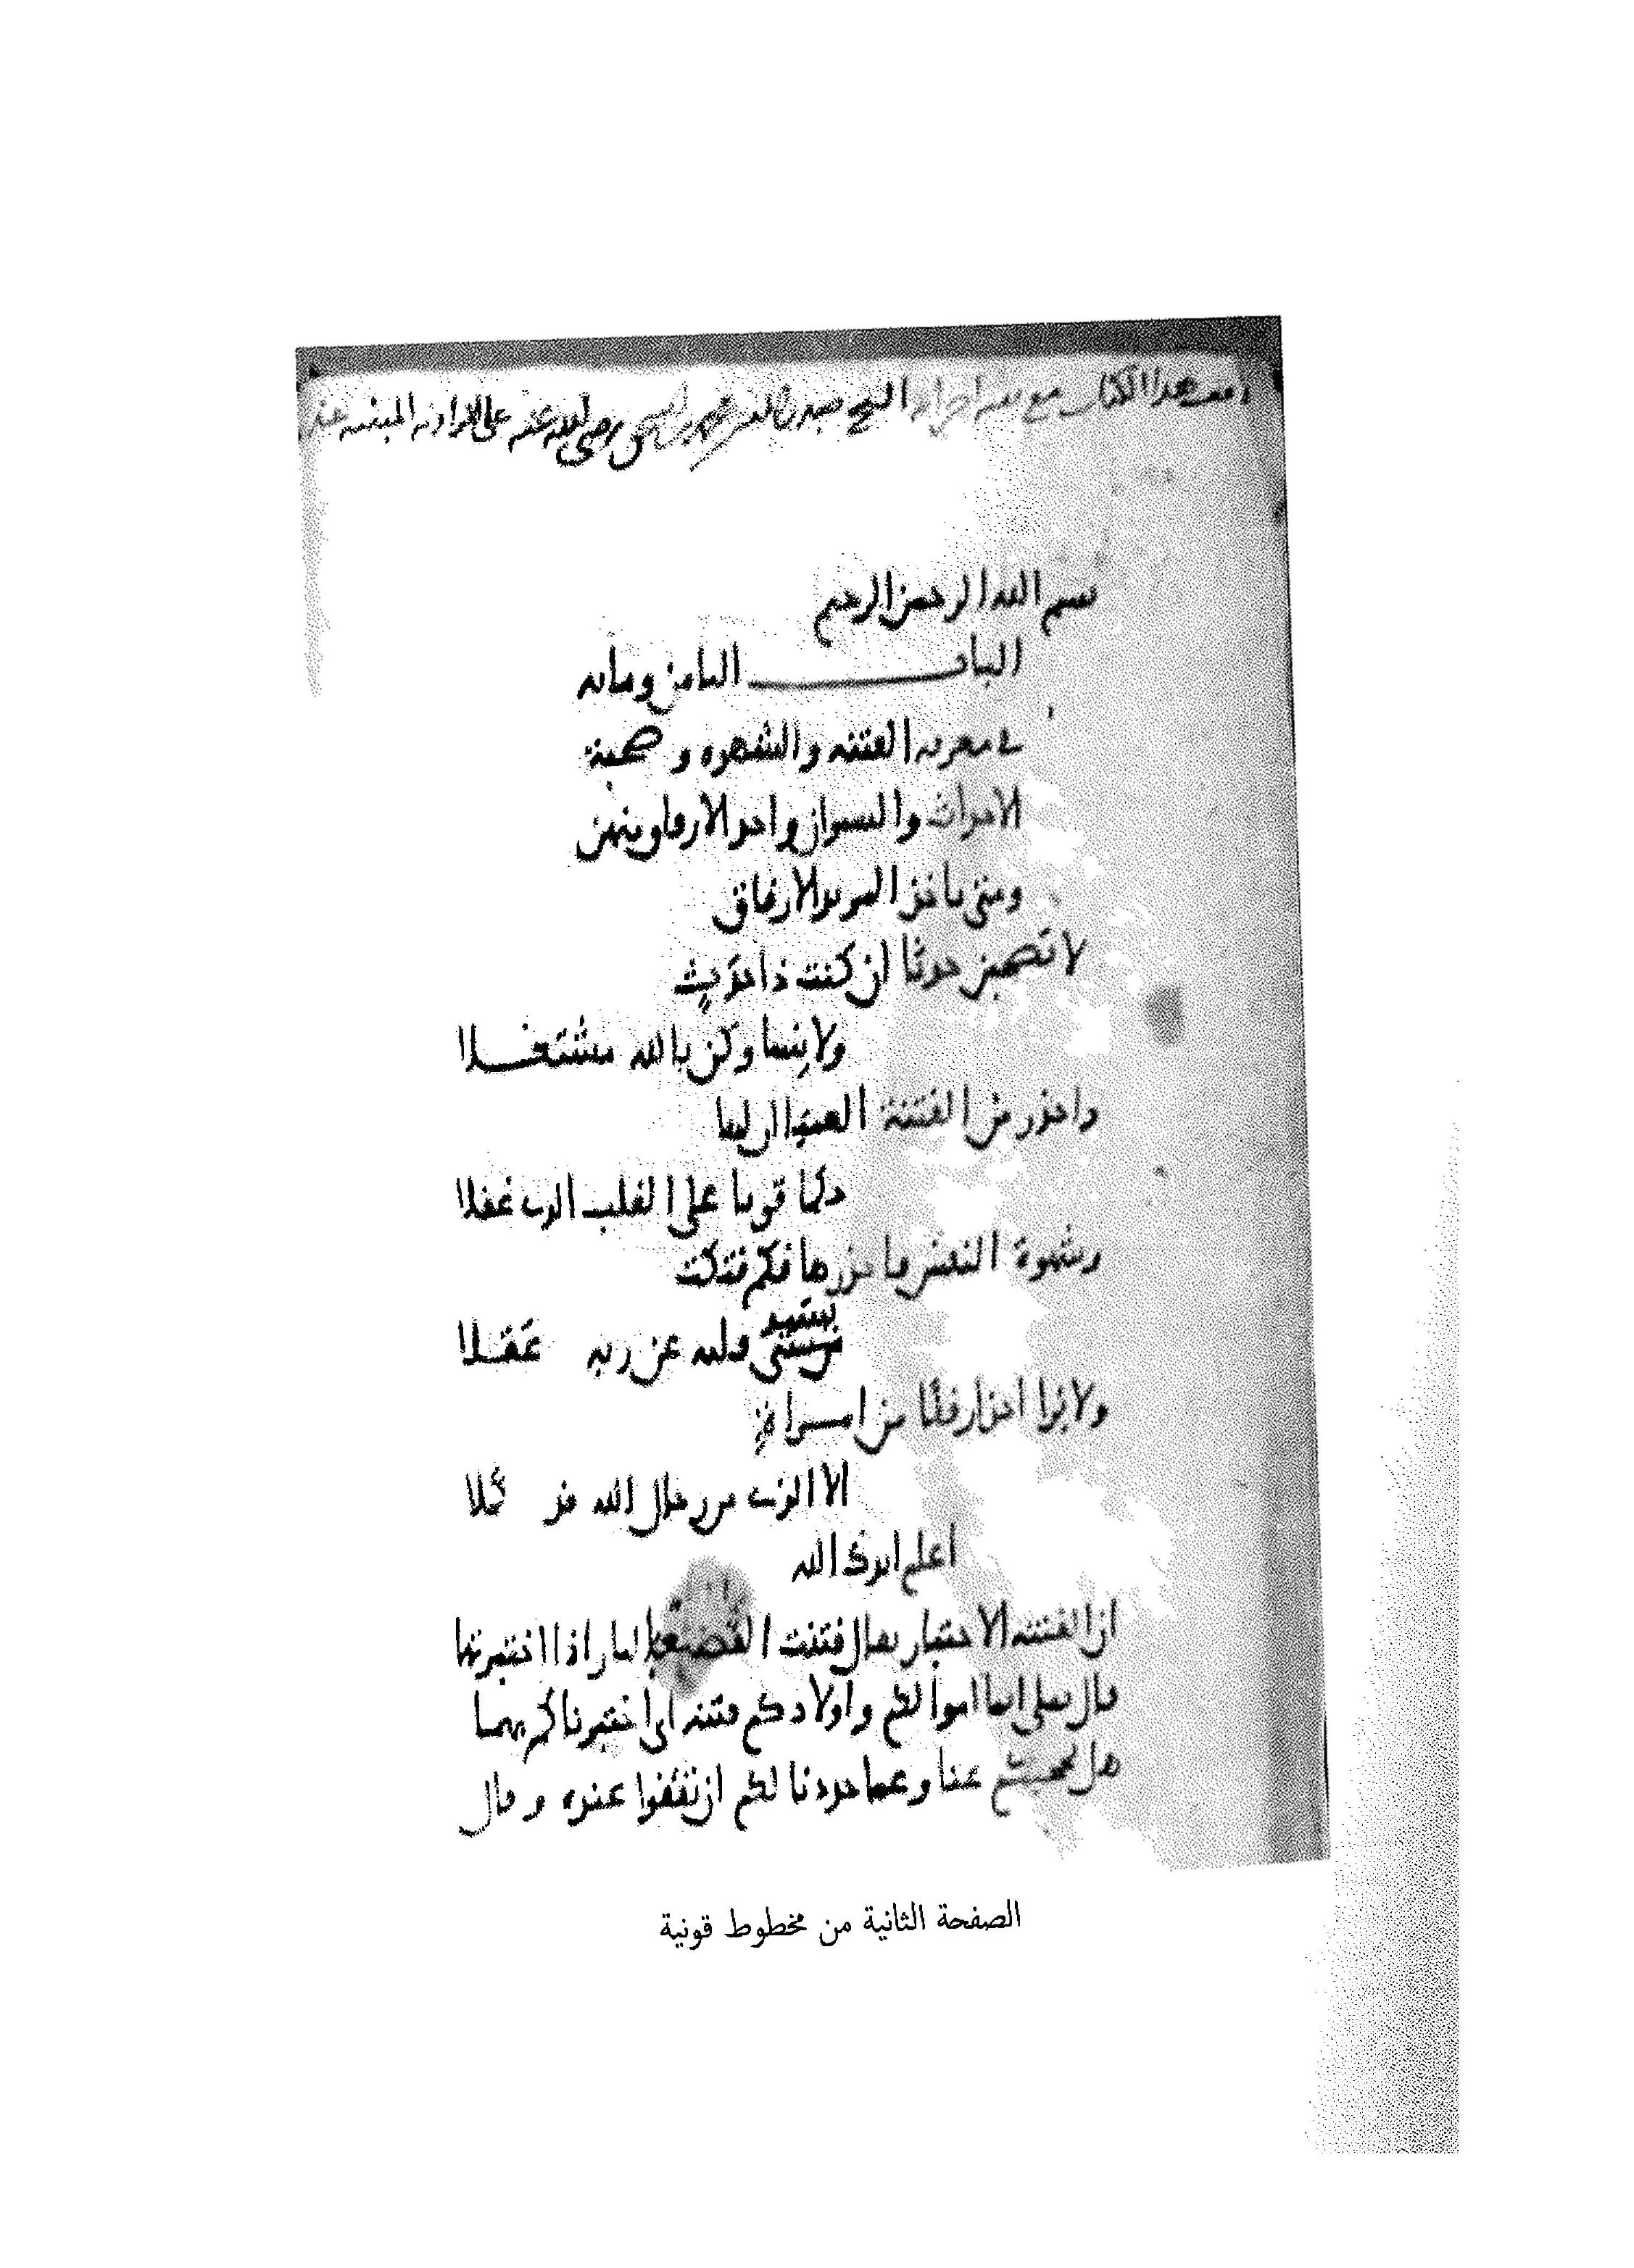 وقف هذا الكتاب مع بقية اجزائه الشيخ صدر الدين محمد بن اسحق رضى الله عنه على الخزانة المبنية عند
بسم الله الرحمن الرحيم
الباب الثامن ومائه
فى معرفه الفتنه والشهوه وصحبة
الاحداث والنسوان واخذ الارفاق منهن
ومتى ياخذ المريد الارفاق
لا تصحبن حدثا ان كنت ذا حدث
ولا نسا وكن بالله مشتغلا
واحذر من الفتنة العميا ان لها
حكما قويا على القلب الذى غفلا
وشهوة النفس فاحذرها فكم فتكت
بسيد قلبه عن ربه غفلا
ولا ترا اخذا رفقا من امراة
الا الذى من رجال الله قد كملا
اعلم ايدك الله
ان الفتنه الاختبار يقال فتنت الفضة بالنار اذا اختبرتها
قال تعلى انما اموالكم واولادكم فتنه اى اختبرناكم بهما
هل تحجبكم عنا وعما حددنا لكم ان تقفوا عنده وقال
الصفحة الثانية من مخطوط قونية